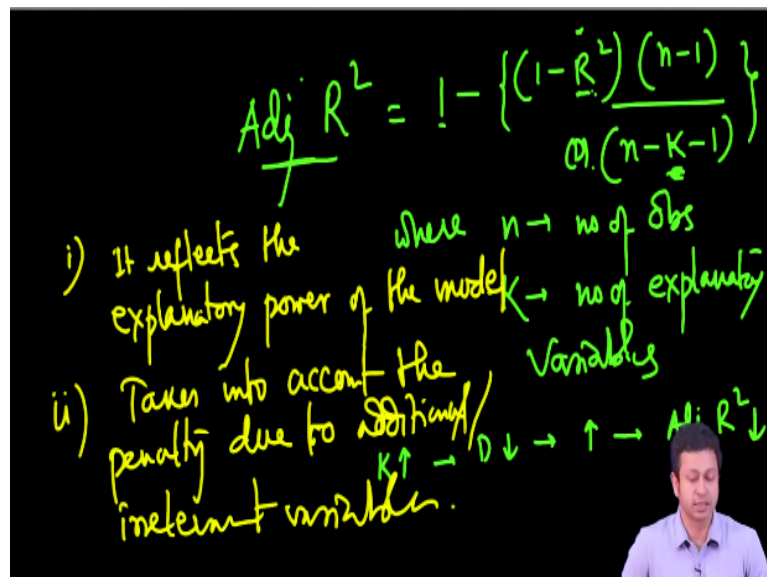 Adj R² = 1 - {(1-R²) (n-1)
(n-K-1)}
where n → no of obs
K → no of explanatory
variables
i) It reflects the
explanatory power of the model
ii) Takes into account the
penalty due to additional/
irrelevant variables.
K↑ → D↓ → ↑ → Adj R²↓